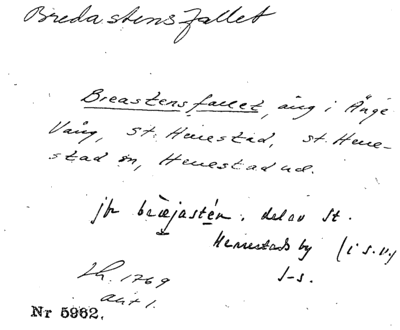 Bredastensfallet
Breastensfallet, äng i Änge
Vång, St. Herrestad, St. Herre-
stad sn, Herrestad hd.
jfr bræjastén, del av St.
Herrestads by (i s.v.)
1769
akt 1.
Nr 5962.